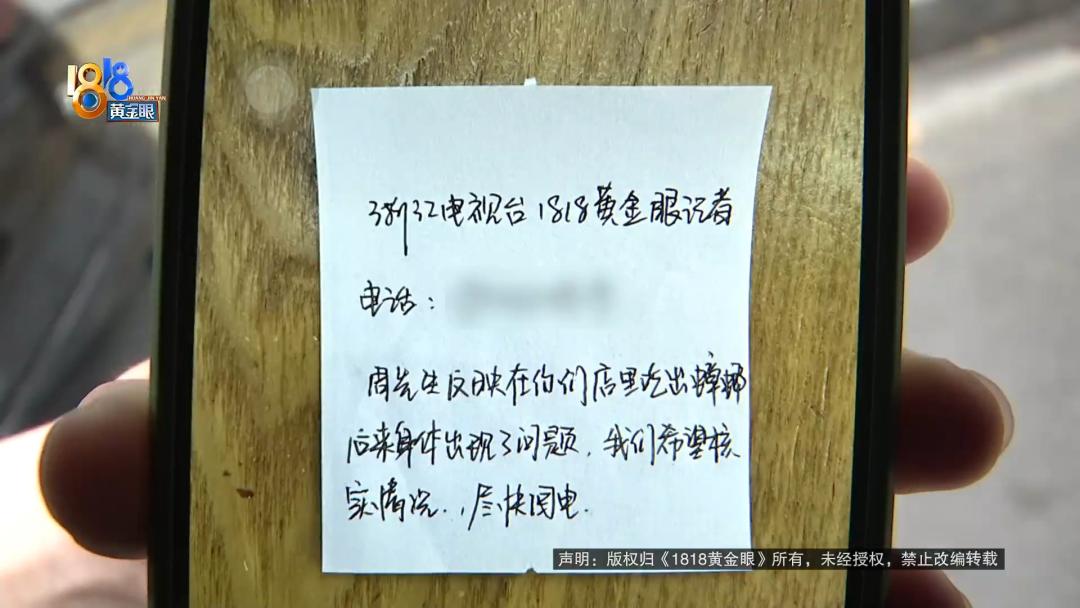 1818
HUANG JIN YAN
黄金眼
浙江电视台1818黄金眼记者
电话:
周先生反映在你们店里吃出蟑螂
后来身体出现了问题,我们希望核
实情况.,尽快回电.
声明:版权归《1818黄金眼》所有,未经授权,禁止改编转载